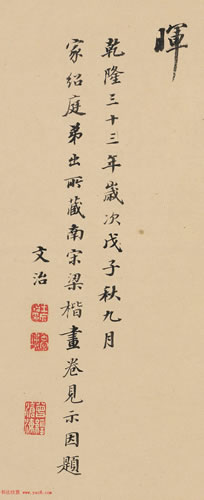 暉
乾隆三十三年歲次戊子秋九月
家紹庭弟出所藏南宋梁楷畫卷見示因題
文治